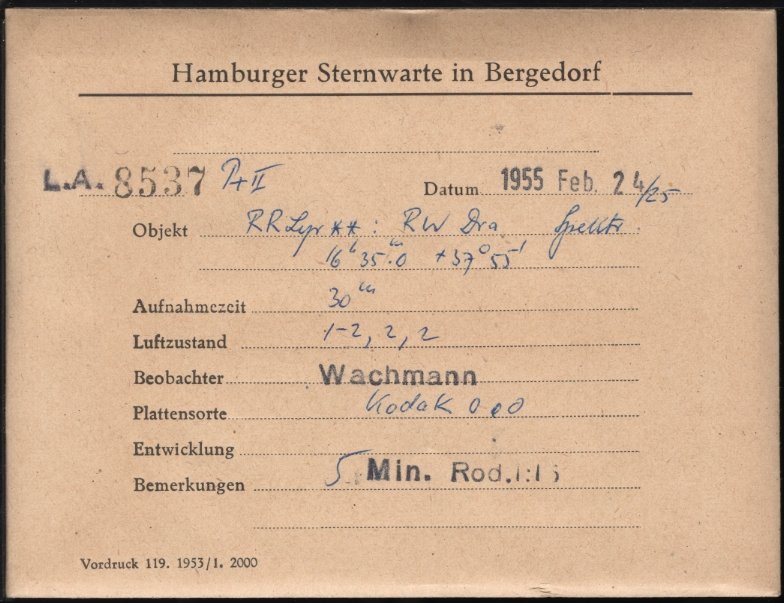 Hamburger Sternwarte in Bergedorf
L.A. 8537 Pr II Datum 1955 Feb. 24/25
Objekt RR Lyr **: RW Dra Spektr.
16ʰ 35ᵐ.0 +37° 55'
Aufnahmezeit 30ᵐ
Luftzustand 1-2, 2, 2
Beobachter Wachmann
Plattensorte Kodak OaO
Entwicklung
Bemerkungen 5 Min. Rod.1:15
Vordruck 119. 1953/1. 2000